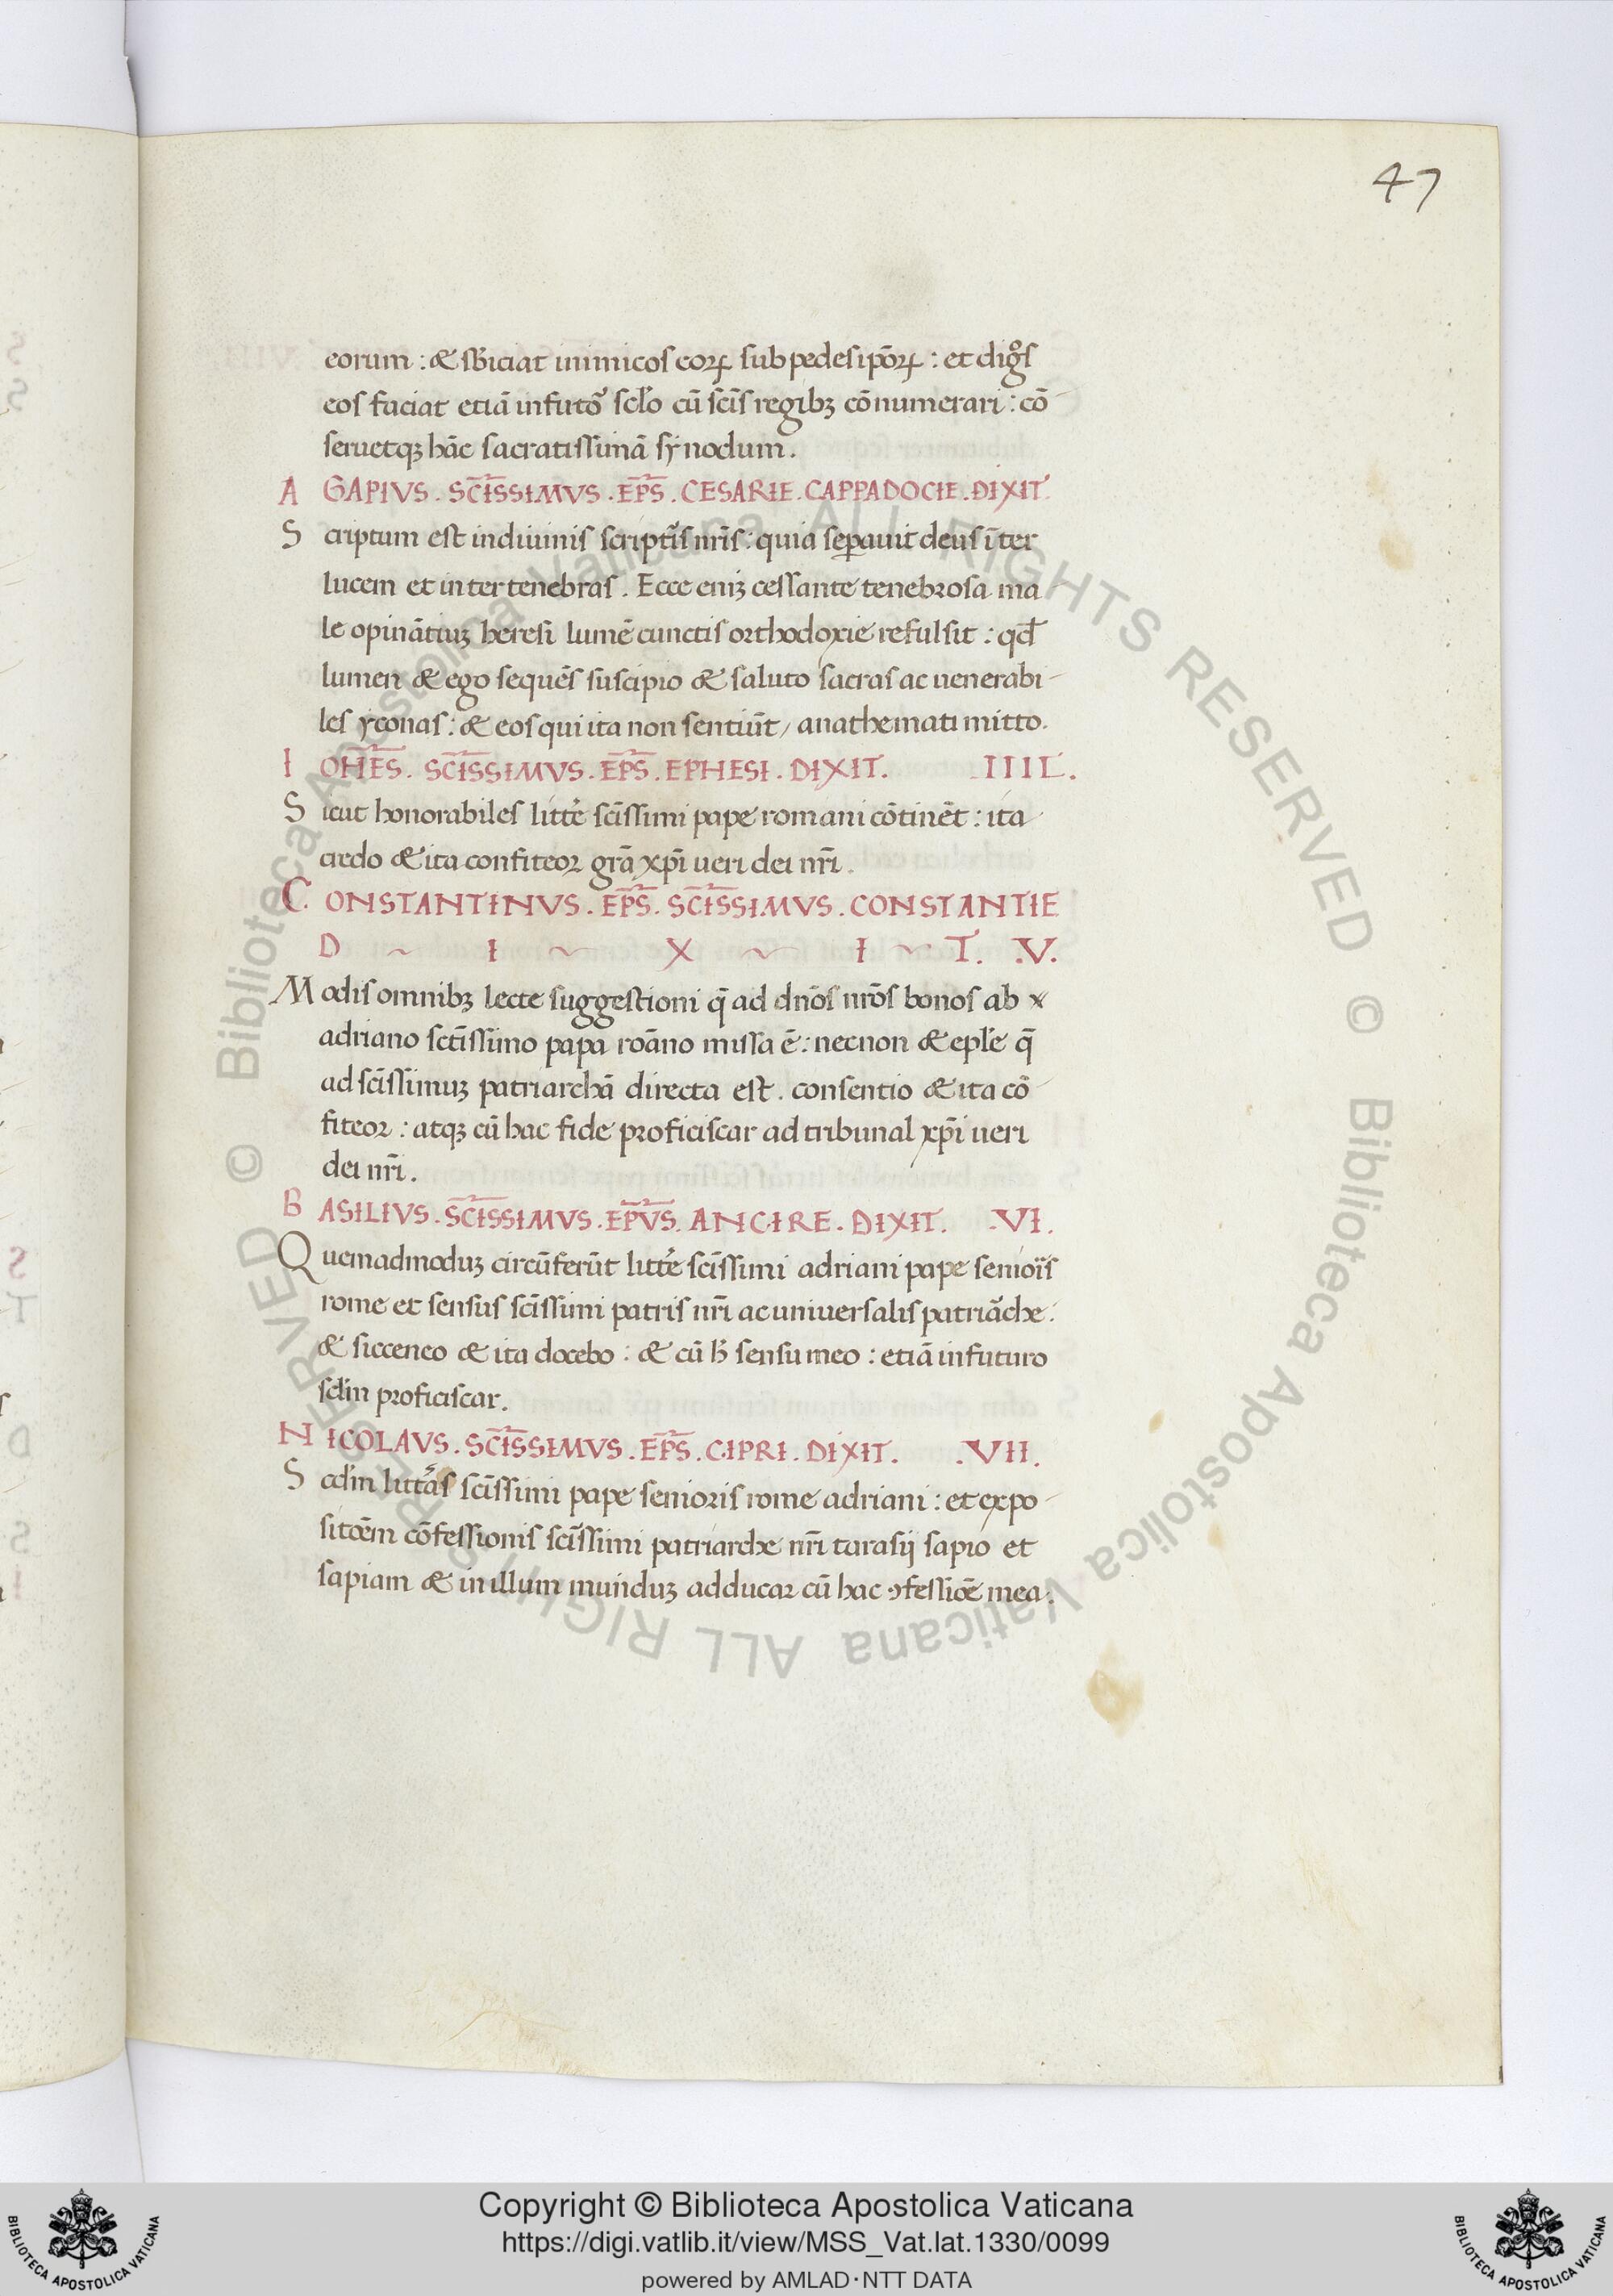 47
eorum : & sb̄iciat inimicos eoꝝ sub pedes ip̄oꝝ : et digͦs
eos faciat etiā in futōꝰ scl̄o cū sc̄is regibꝫ cō numerari : cō
seruetqꝫ hāc sacratissimā synodum .
A GAPIVS . SC̄ISSIMVS . EP̄S . CESARIE . CAPPADOCIE . DIXIT .
S criptum est in diuinis scriptīs nr̄is : quia seꝑauit deus īter
lucem et inter tenebras . Ecce eniꝫ cessante tenebrosa ma
le opinātiuꝫ heresi lumē cunctis orthodoxie refulsit : qd̄
lumen & ego sequēs suscipio & saluto sacras ac uenerabi-
les yconas : & eos qui ita non sentiūt / anathemati mitto .
I OHĒS . SC̄ISSIMVS . EP̄S . EPHESI . DIXIT . .IIII.
S icut honorabiles litte᷒ sc̄issimi pape romani cōtinēt : ita
credo & ita confiteor gr̄a xp̄i ueri dei nr̄i .
C ONSTANTINVS . EP̄S . SC̄ISSIMVS . CONSTANTIE
D ~ I ~ X ~ I ~ T . .V.
M odis omnibꝫ lecte suggestioni q̄ ad dn̄os nr̄os bonos ab
adriano sctīssimo papa roāno missa ē : necnon & epl̄e q̄
ad sc̄issimuꝫ patriarchā directa est . consentio & ita cō-
fiteor : atqꝫ cū hac fide proficiscar ad tribunal xp̄i ueri
dei nr̄i .
B ASILIVS . SC̄ISSIMVS . EP̄VS . ANCIRE . DIXIT . .VI.
Q uemadmoduꝫ circūferūt litte᷒ sc̄issimi adriani pape senioris
rome et sensus sc̄issimi patris nr̄i ac uniuersalis patriāche :
& sic ceneo & ita docebo : & cū h̄ sensu meo : etiā in futuro
scl̄m proficiscar .
N ICOLAVS . SC̄ISSIMVS . EP̄S . CIPRI . DIXIT . .VII.
S cd̄m litt̄as sc̄issimi pape senioris rome adriani : et expo-
sitōem cōfessionis sc̄issimi patriarche nr̄i tarasij sapio et
sapiam & in illum munduꝫ adducar cū hac ꝯfessiōe mea .
© Biblioteca Apostolica Vaticana ALL RIGHTS RESERVED © Biblioteca Apostolica Vaticana ALL RIGHTS RESERVED
BIBLIOTECA APOSTOLICA VATICANA
Copyright © Biblioteca Apostolica Vaticana
https://digi.vatlib.it/view/MSS_Vat.lat.1330/0099
powered by AMLAD·NTT DATA
BIBLIOTECA APOSTOLICA VATICANA